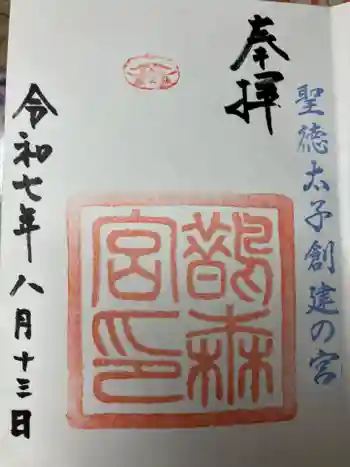 奉拝
聖徳太子創建の宮
鵲森
宮印
令和七年八月十三日